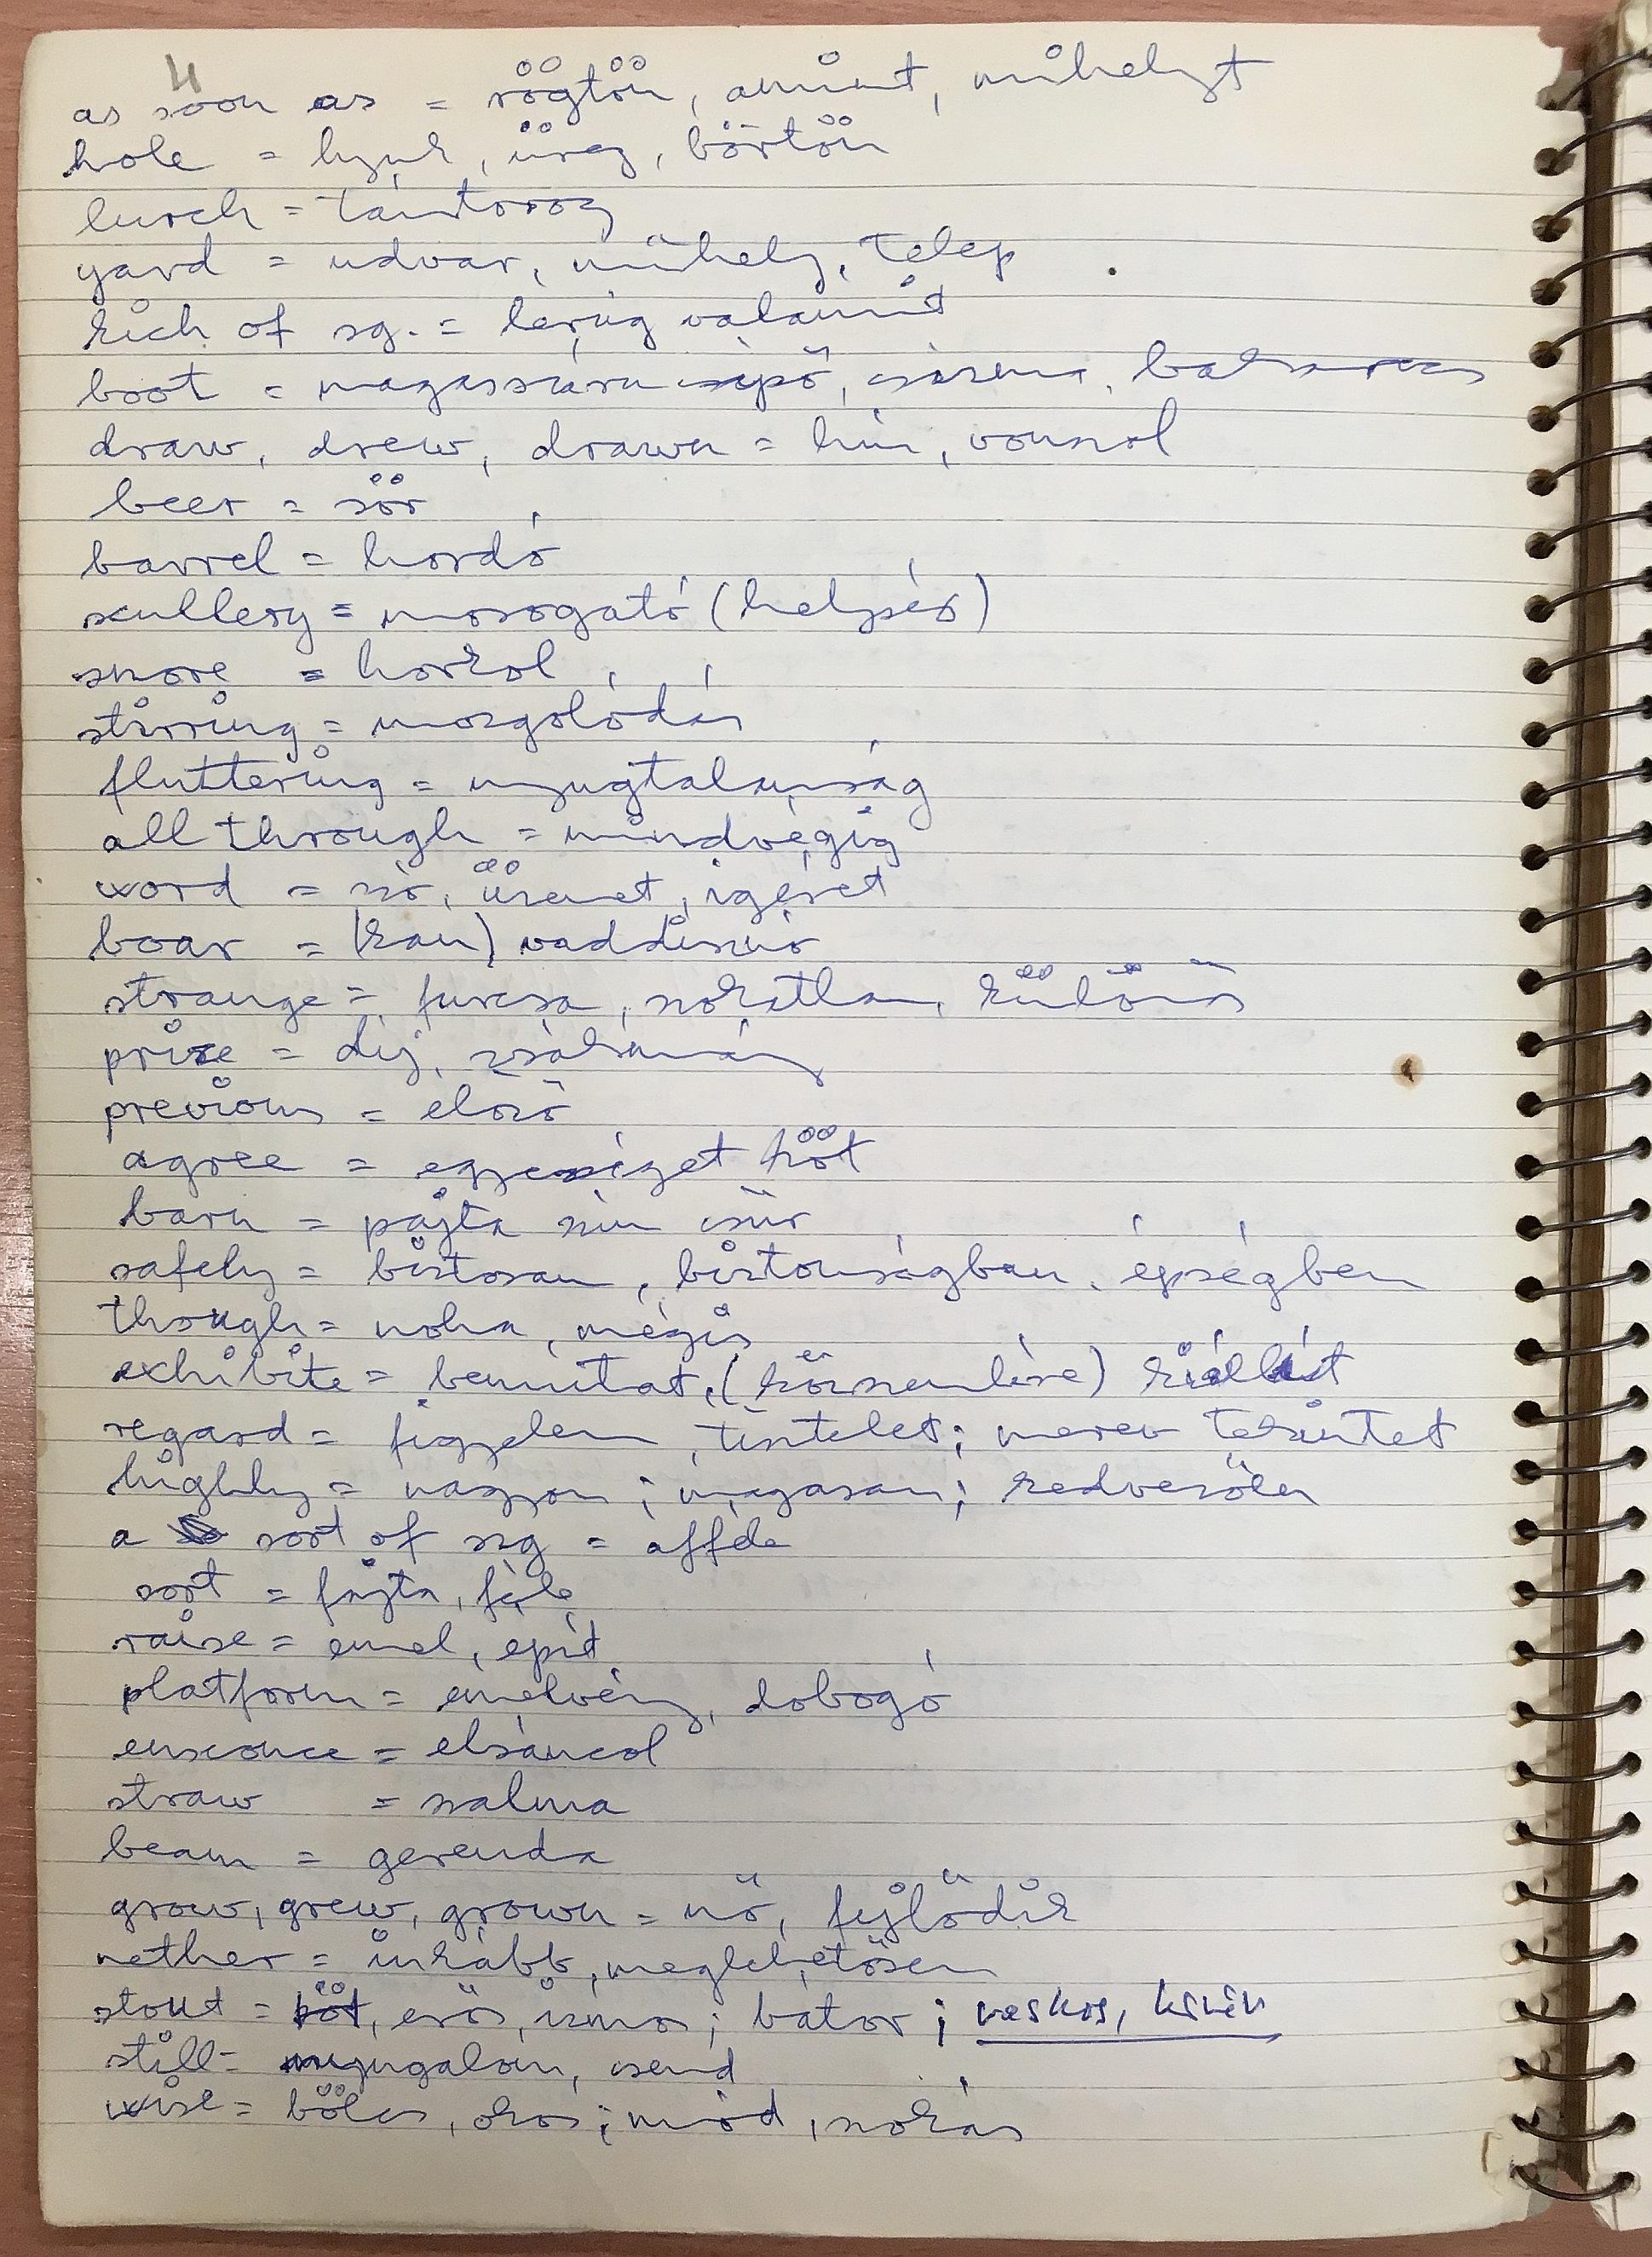 4
as soon as = rögtön, amint, mihelyt
hole = lyuk, üreg, börtön
lurch = tántorog
yard = udvar, műhely, telep
kick of sg. = lerúg valamit
boot = magasszáru cipő, csizma, bakancs
draw, drew, drawn = húz, vonszol
beer = sör
barrel = hordó
scullery = mosogató (helység)
snore = horkol
stirring = mozgolódás
fluttering = nyugtalanság
all through = mindvégig
word = szó, üzenet, igéret
boar = (kan) vaddisznó
strange = furcsa, szokatlan, különös
prize = díj, zsákmány
previous = előző
agree = egyességet köt
barn = pajta szín csűr
safely = biztosan, biztonságban, épségben
though = noha, mégis
exhibite = bemutat, (közszemlére) kiállít
regard = figyelem, tisztelet; merev tekintet
highly = nagyon; magasan; kedvezően
a sort of szg = afféle
sort = fajta, féle
raise = emel, épít
platform = emelvény, dobogó
ensconce = elsáncol
straw = szalma
beam = gerenda
grow, grew, grown = nő, fejlődik
nether = inkább, meglehetősen
stout = erős, izmos; bátor; vaskos, kövér
still = nyugalom, csend
wise = bölcs, okos; mód, szokás